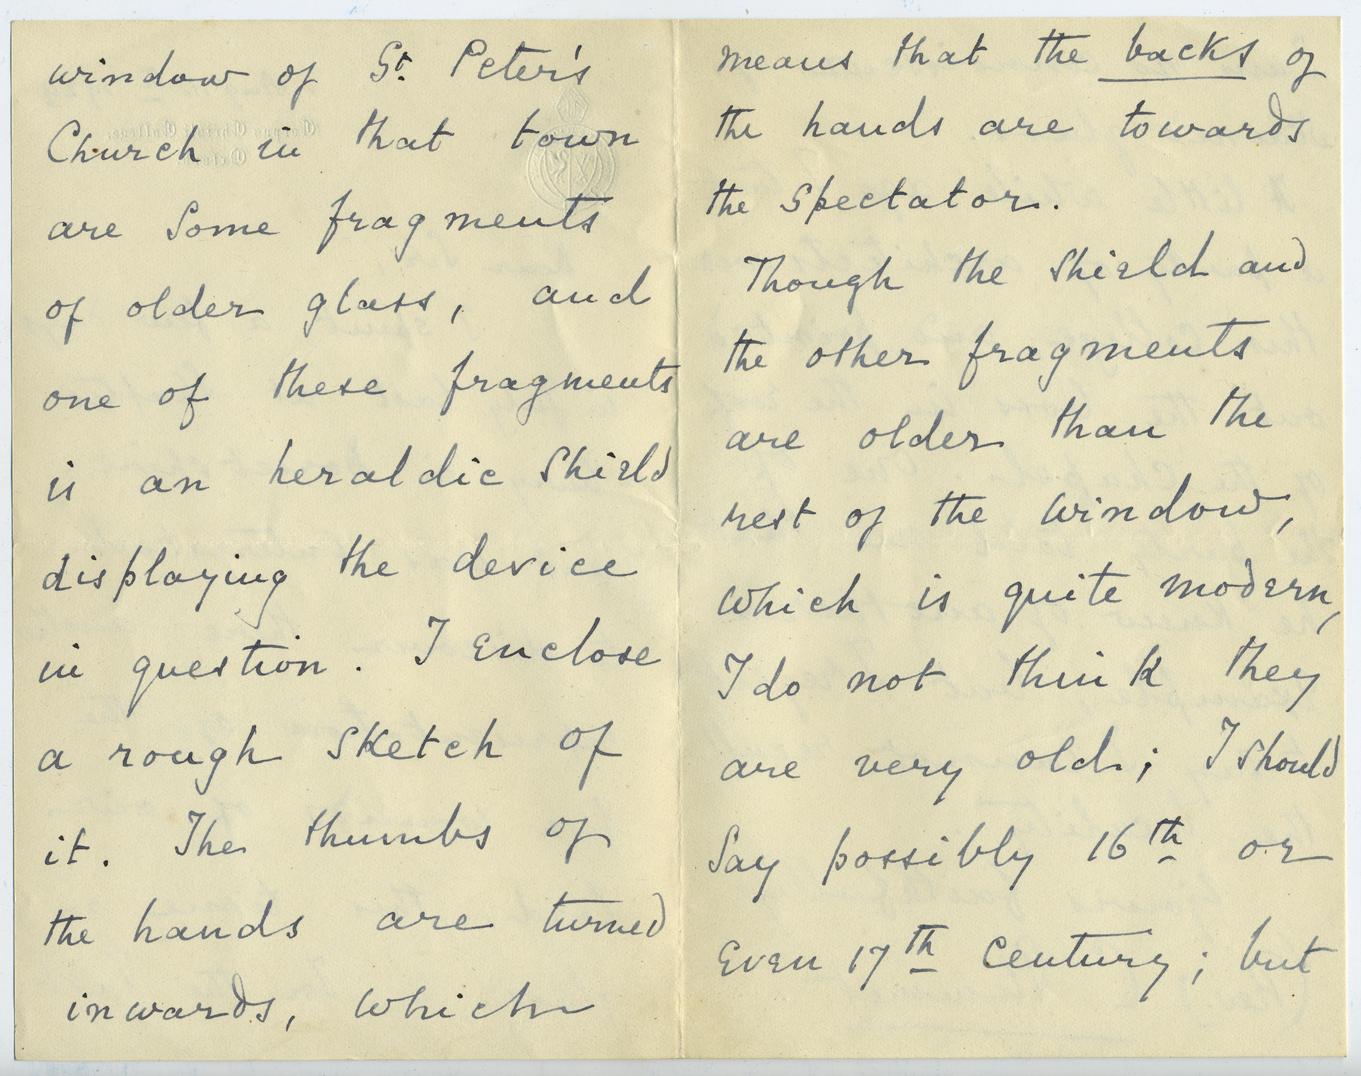 window of St. Peter's
Church in that town
are some fragments
of older glass, and
one of these fragments
is an heraldic shield
displaying the device
in question. I enclose
a rough sketch of
it. The thumbs of
the hands are turned
inwards, which
means that the backs of
the hands are towards
the spectator.
Though the shield and
the other fragments
are older than the
rest of the window,
which is quite modern,
I do not think they
are very old; I should
say possibly 16th or
even 17th century; but